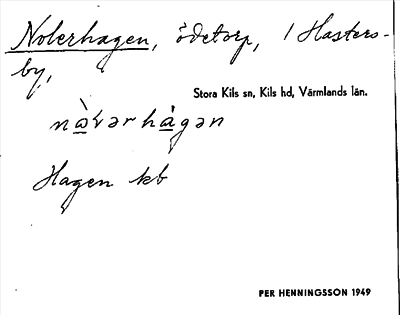 Nolerhagen, ödetorp, 1 Hasters-
by,
Stora Kils sn, Kils hd, Värmlands län.
nὰ̱lərhὰ̱gən
Hagen kb
PER HENNINGSSON 1949